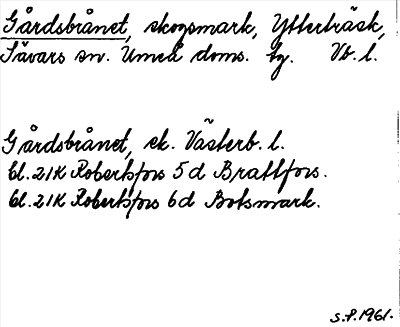 Gårdsbrånet, skogsmark, Ytterträsk,
Sävars sn. Umeå doms. tg. Vb. l.
Gårdsbrånet, ek. Västerb. l.
bl. 21K Robertsfors 5d Brattfors.
bl. 21K Robertsfors 6d Botsmark.
S.P. 1961.